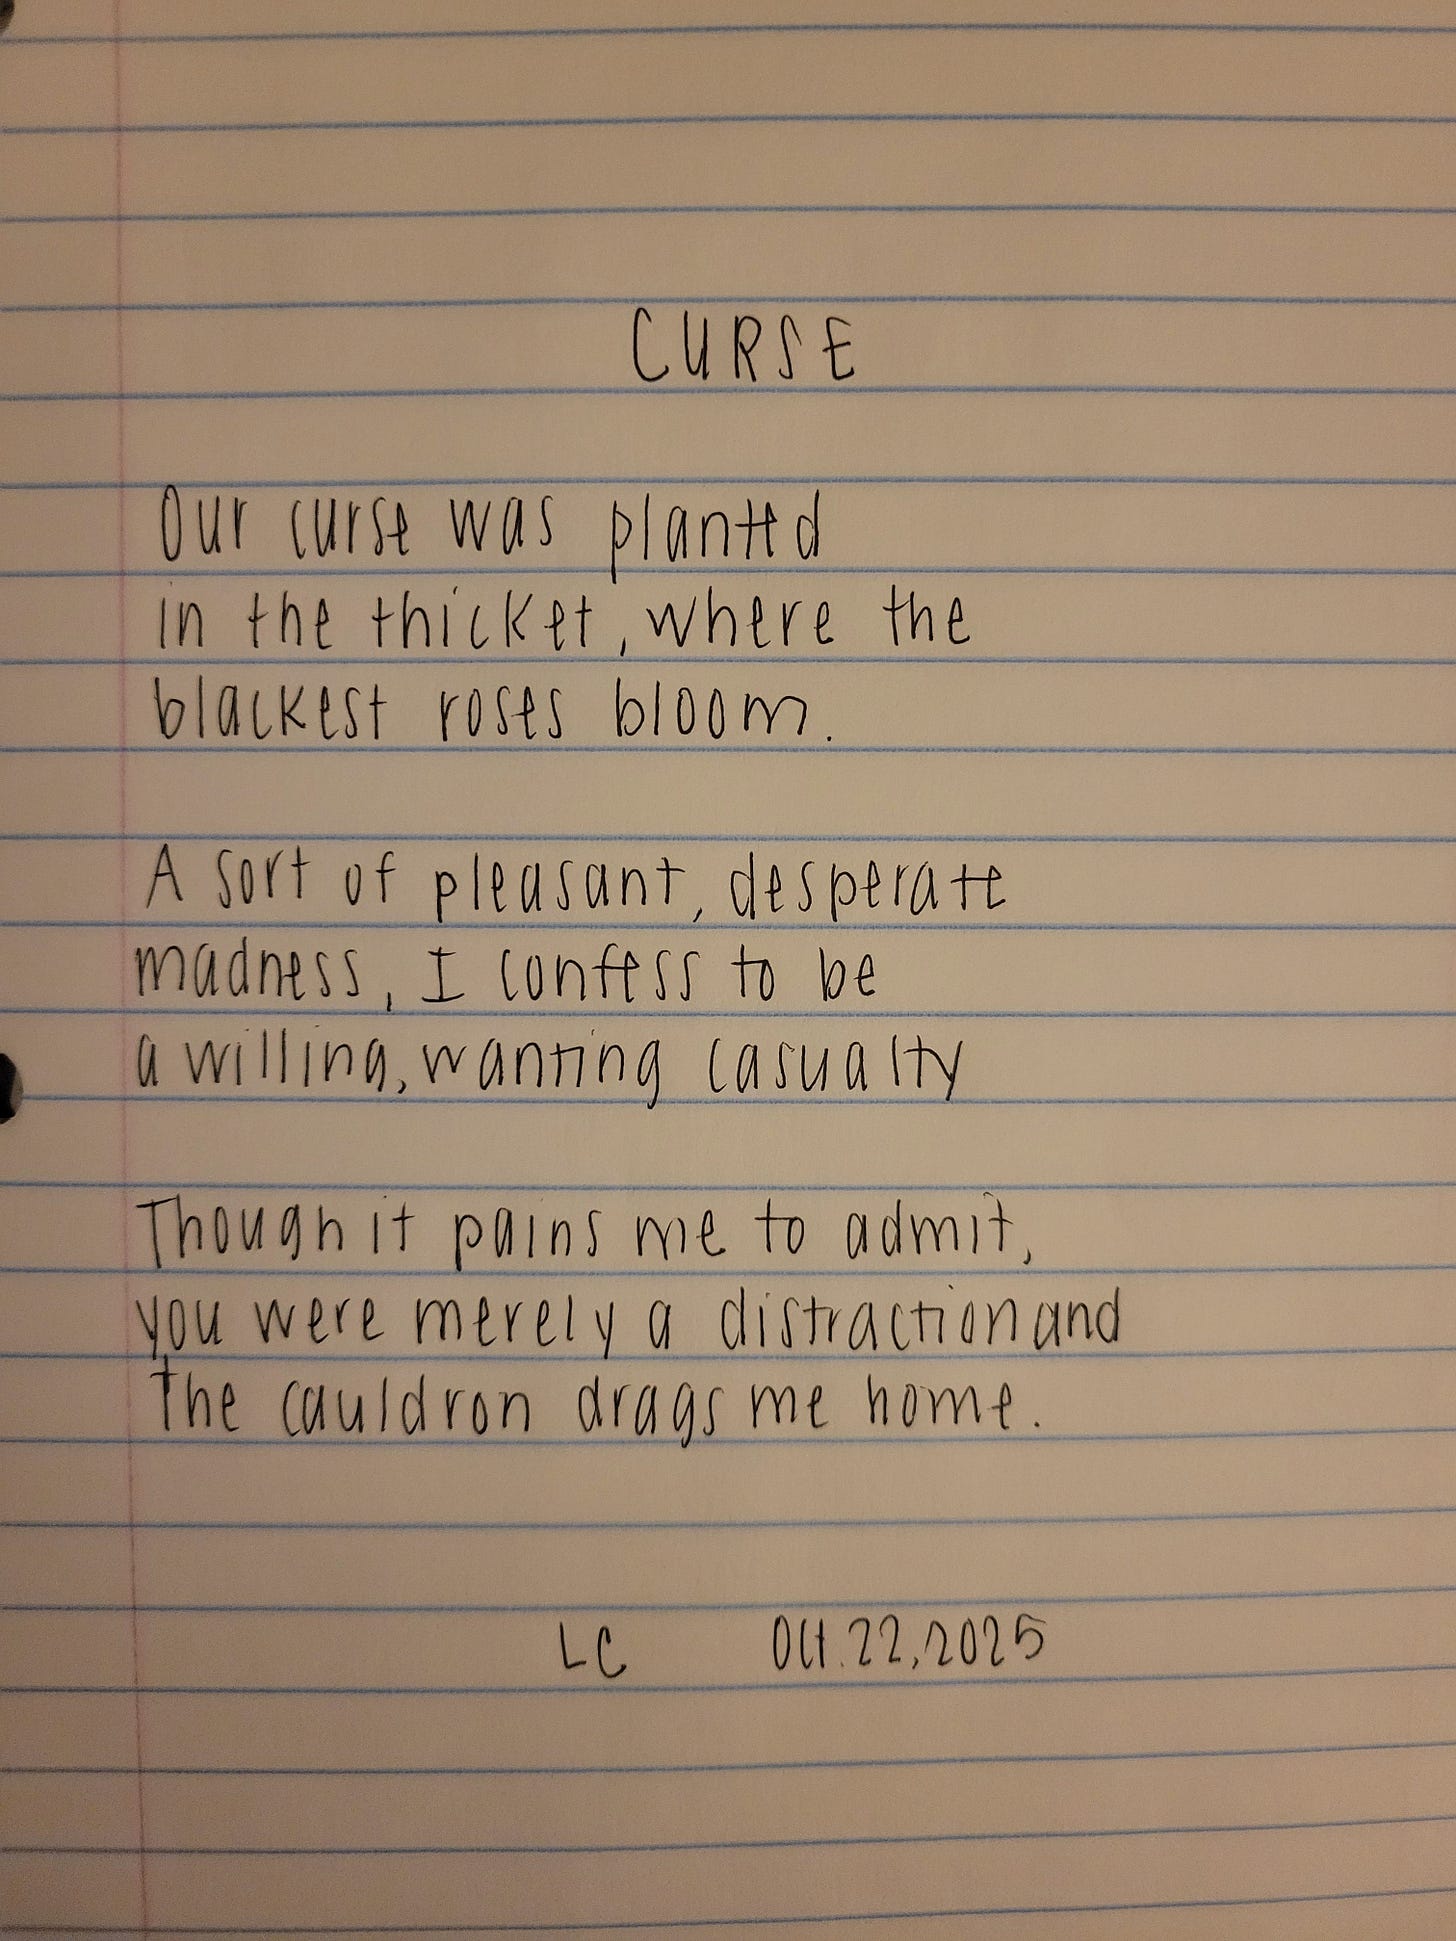 CURSE
Our curse was planted
in the thicket, where the
blackest roses bloom.
A sort of pleasant, desperate
madness, I confess to be
a willing, wanting casualty
Though it pains me to admit,
you were merely a distraction and
the cauldron drags me home.
LC Oct. 22, 2025